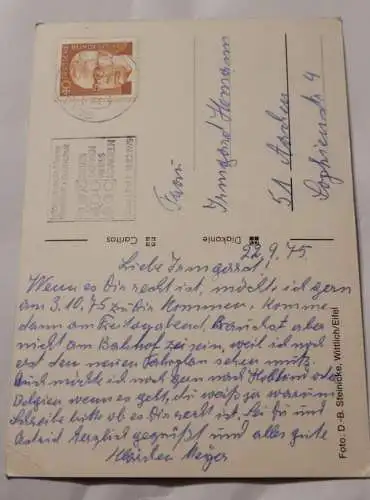 22.9.75
Liebe Irmgard!
Wenn es Dir recht ist, möchte ich gern
am 3.10.75 zu Dir kommen. Komme
dann am Freitagabend. Brauchst aber
nicht am Bahnhof zu sein, weil ich erst
erst den neuen Fahrplan sehen muß.
Auch möchte ich noch gern nach Holland oder
Belgien wenn es geht, du weißt ja warum.
Schreibe bitte ob es Dir recht ist. Sei Du und
Astrid herzlich gegrüßt und alles gute
Meyer
Frau
Irmgard Hermann
51 Aachen
Sophienstr 4
Diakonie
Caritas
Foto: D.-B. Steinicke, Wittlich/Eifel
40